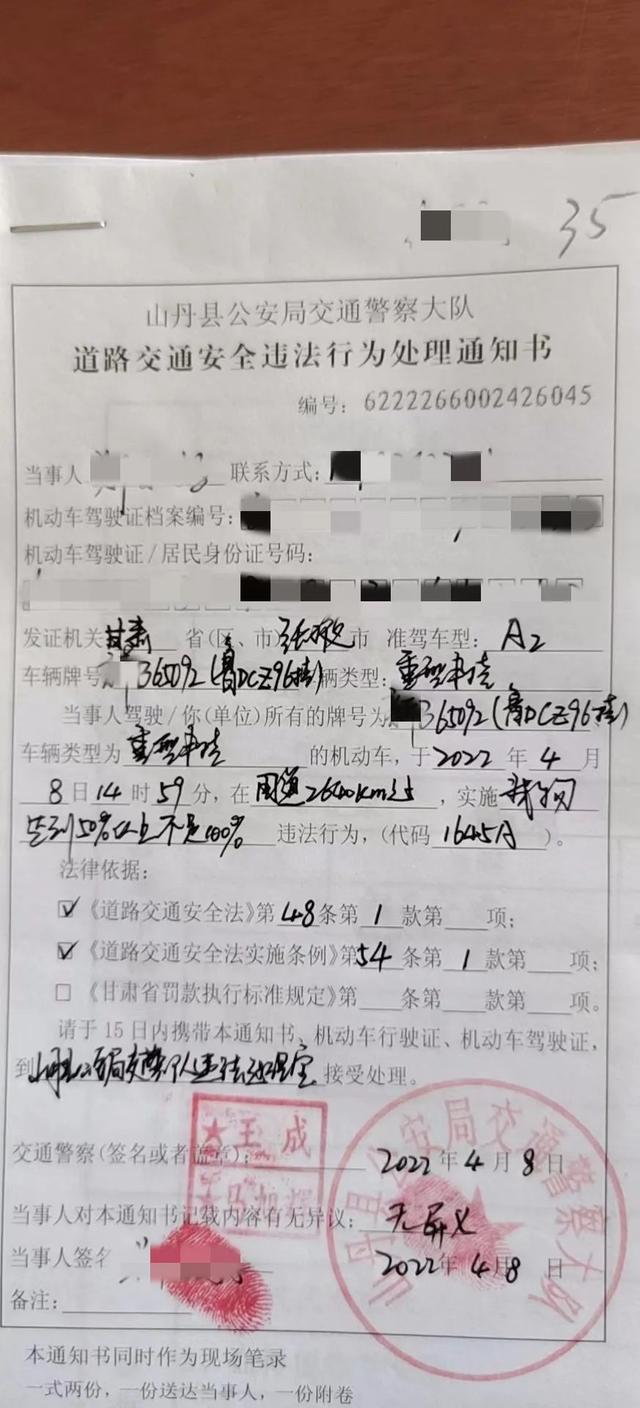 35
山丹县公安局交通警察大队
道路交通安全违法行为处理通知书
编号：6222266002426045
当事人 联系方式：
机动车驾驶证档案编号：
机动车驾驶证/居民身份证号码：
发证机关甘肃省(区、市)张掖市 准驾车型：A2
车辆牌号 365092(鲁DCZ96挂)辆类型：重型半挂
当事人驾驶/你(单位)所有的牌号为 365092(鲁DCZ96挂)
车辆类型为重型半挂的机动车，于2022年4月
8日14时59分，在国道2640km+，实施载物
达到50%以上不足100%违法行为，(代码1645A)。
法律依据：
☑《道路交通安全法》第48条第1款第 项；
☑《道路交通安全法实施条例》第54条第1款第 项；
☐《甘肃省罚款执行标准规定》第 条第 款第 项。
请于15日内携带本通知书、机动车行驶证、机动车驾驶证，
到山丹县公安局交警大队违法处理室接受处理。
交通警察(签名或者盖章)： 2022年4月8日
王成
马旭
当事人对本通知书记载内容有无异议：无异议
当事人签名 2022年4月8日
备注：
山丹县公安局交通警察大队
本通知书同时作为现场笔录
一式两份，一份送达当事人，一份附卷